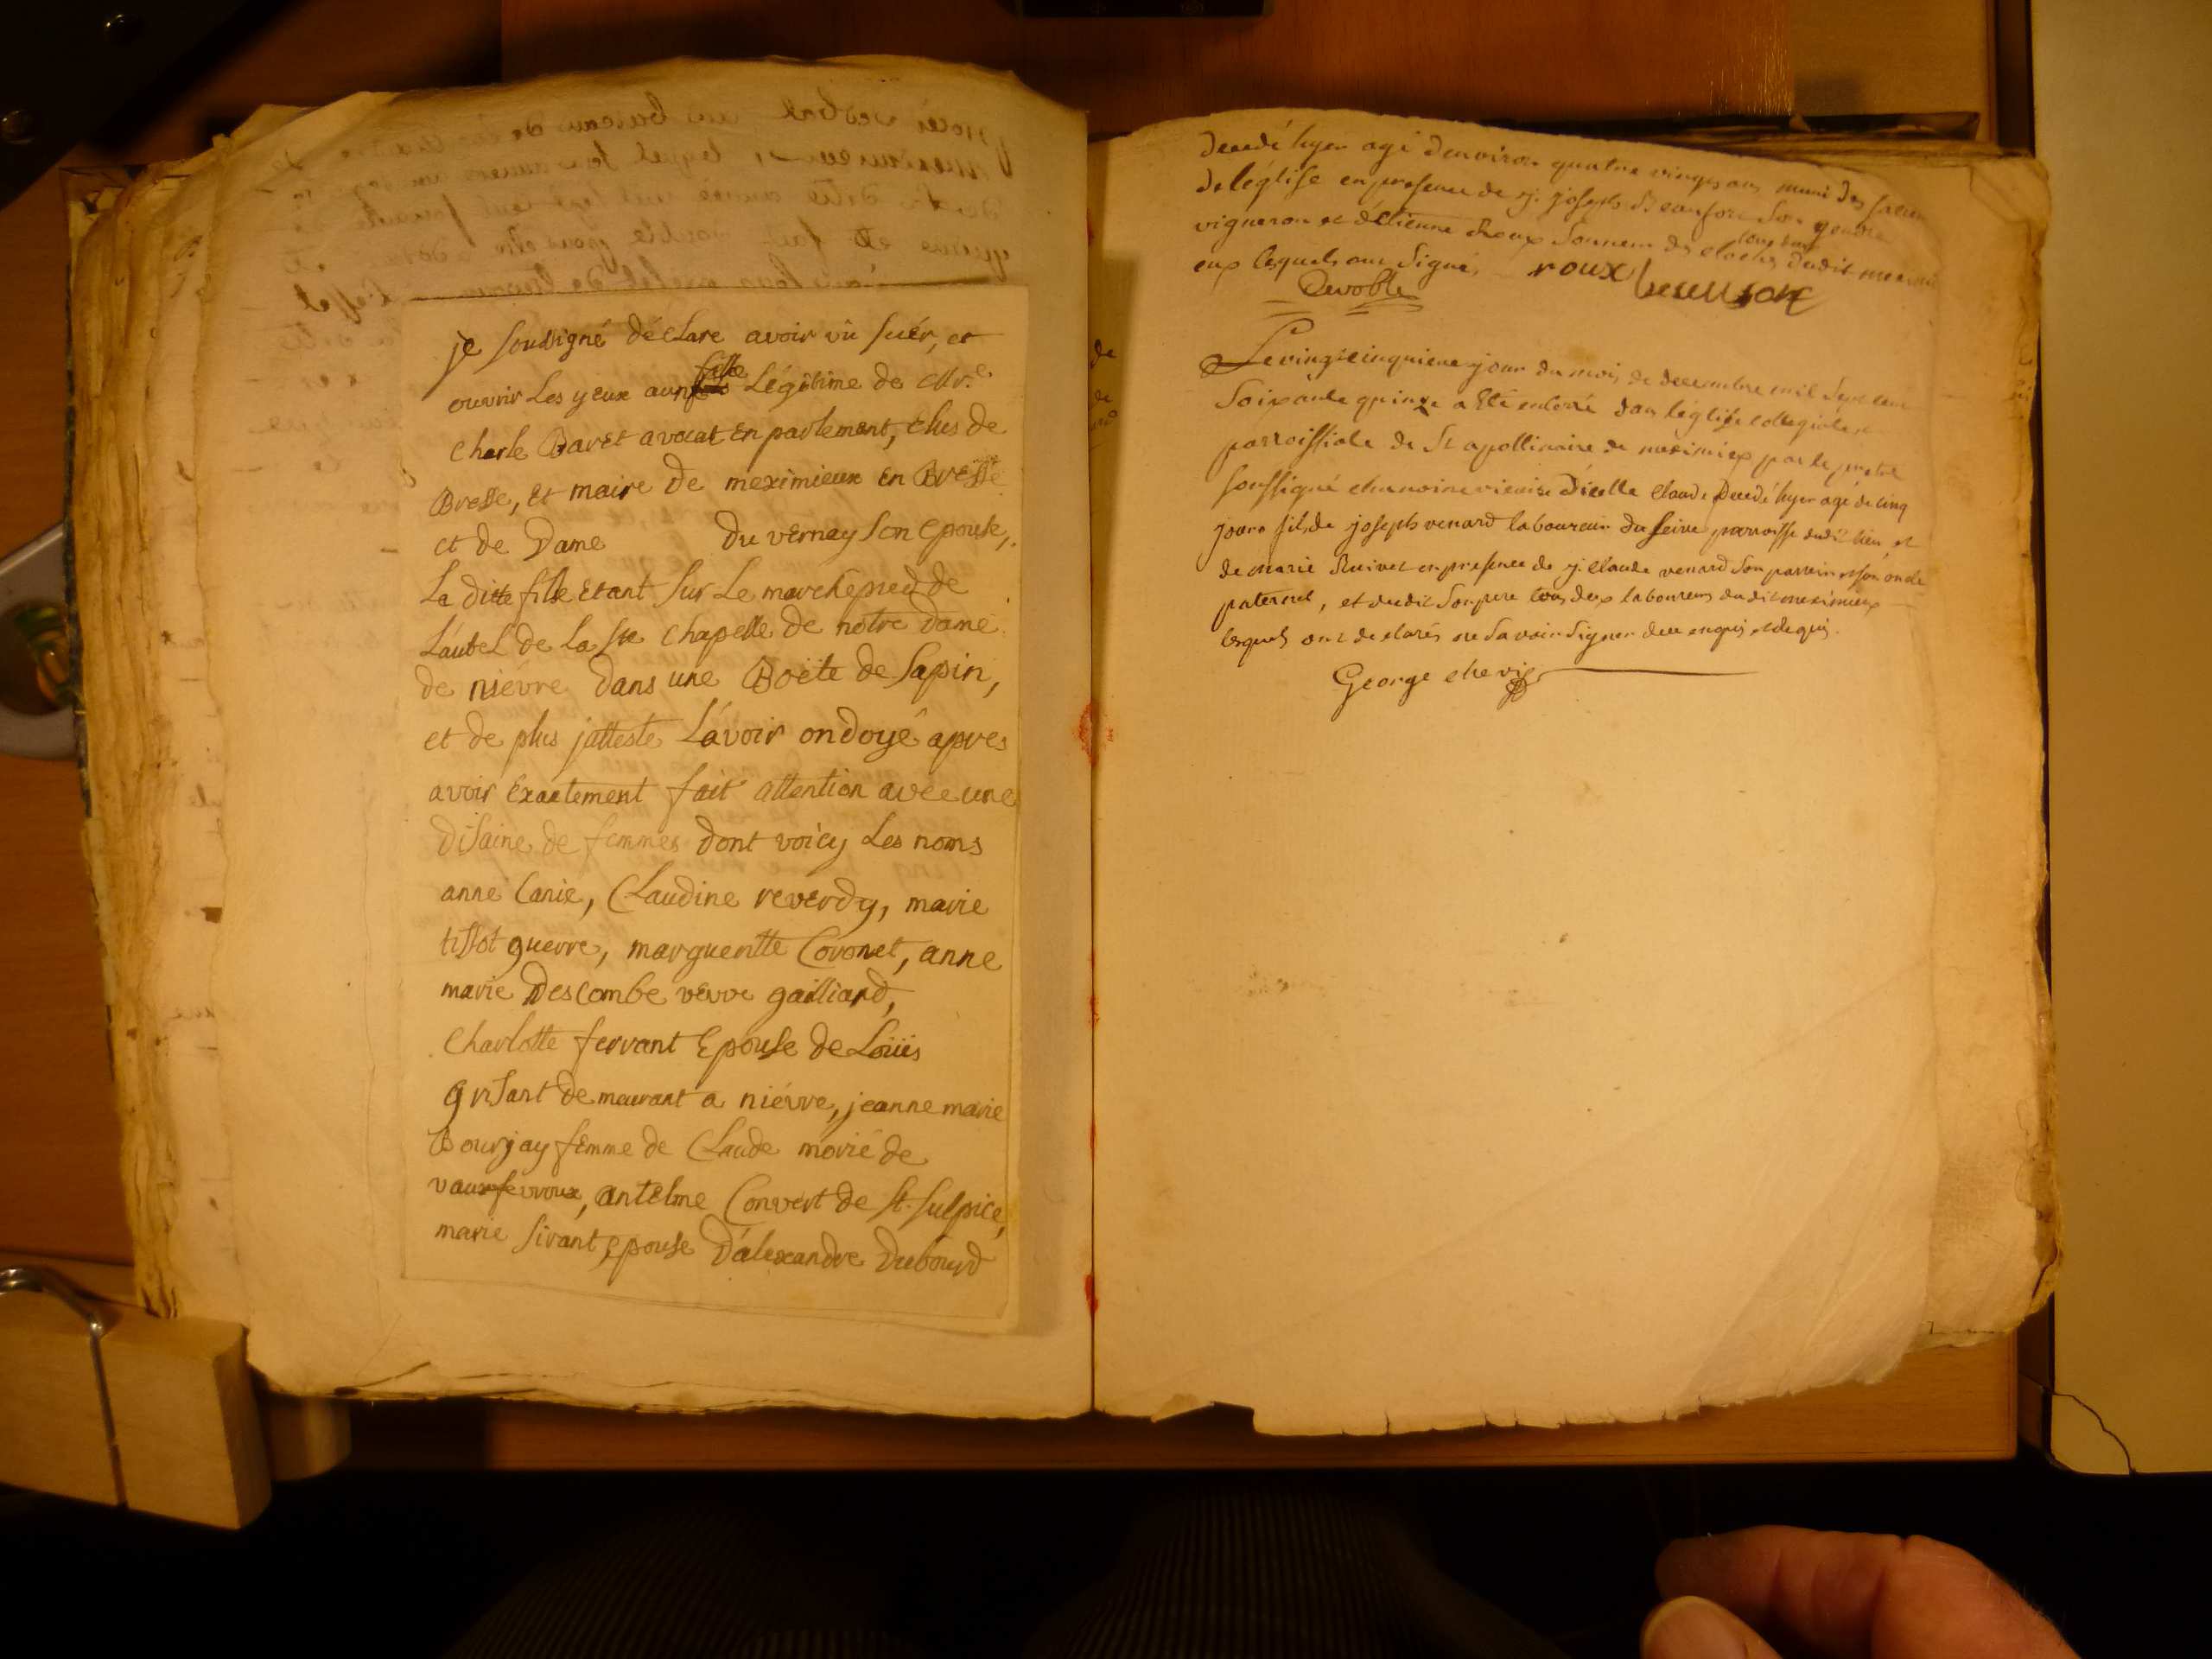 je soussigné déclare avoir vû suér, et
ouvrir Les yeux a une fille Légitime de Mr.e
Charle Baret avocat En parlement, Elus de
Bresse, Et maire de meximieux En Bresse
et de Dame du verney son Epouse,
La ditte fille Etant sur Le marchepied de
L'autel de la Ste Chapelle de notre dame
de niévre dans une Boëte de sapin,
et de plus j'atteste L'avoir ondoyé apres
avoir Exactement fait attention avec une
disaine de femmes dont voicy Les noms
anne Canie, Claudine reverdy, marie
tissot guerre, marguerитte Coronet, anne
marie Descombe vevve gailliard,
Charlotte fervant Epouse de Loüis
grisant demeurant a niévre, jeanne marie
Bourjay femme de Claude morié de
antelme Convert de St. sulpice,
marie sirant epouse d'alexandre Dubourd
decedé hyer agé denviron quatre vingts ans muni des
de léglise en presence de sr. joseph son gendre
vigneron et détienne Roux sonneur des cloches dudit
tous deux
eux lesquels ont signés roux
Devoble
Le vingt cinquieme jour du mois de decembre mil sept cent
soixante quinze a été enterré dans léglise collegiale et
parroissiale de St apollinaire de meximieux par le pretre
soussigné chanoine vicaire dicelle Claude decedé hyer agé de cinq
jours fils de joseph venard laboureur du parroisse dudit lieu, et
de marie en presence de sr. Claude venard son parrein et son oncle
paternel, et dudit son pere tous deux laboureurs dudit meximieux
lesquels ont declarés ne savoir signer de ce enquis et requis.
George chevi